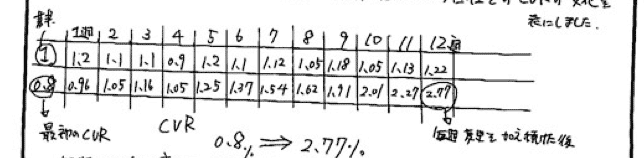 表にしました.
基準 1週 2 3 4 5 6 7 8 9 10 11 12週
1 1.2 1.1 1.1 0.9 1.2 1.1 1.12 1.05 1.18 1.05 1.13 1.22
0.8 0.96 1.05 1.16 1.05 1.25 1.37 1.54 1.62 1.91 2.01 2.27 2.77
最初のCVR CVR 0.8% ⇒ 2.77% 変更を加え続けた後